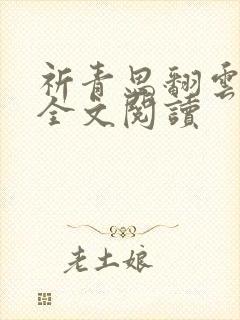 祈青思翻雲
全文閱讀
老土娘